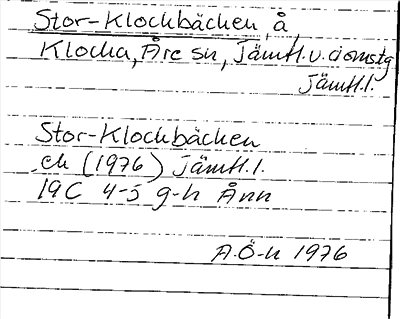 Stor-Klockbäcken, å,
Klocka, Åre sn, Jämtl.v. domstg
Jämtl.l.
Stor-Klockbäcken
ek (1976) Jämtl.l.
19C 4-5 g-h Ånn
A.Ö-n 1976